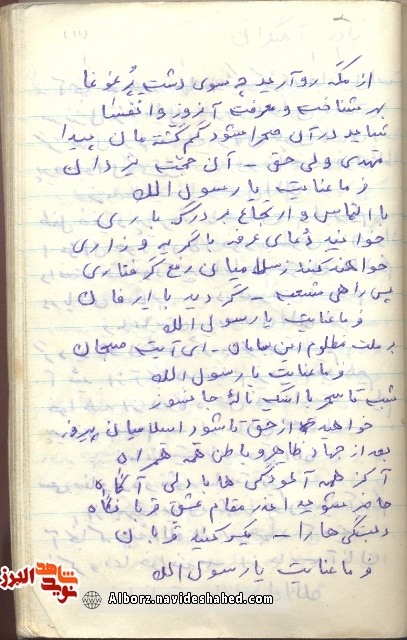 (۱۱)
از مکه رو آرید چه سوی دشت پُر غوغا
بهر شناخت و معرفت آنروز وا نفسا
شاید در آن صحرا شود گم گشته مان پیدا
مهدی ولی حق - آن حجت یزدان
فرما عنایت یا رسول الله
با التماس و ارتجاع بر درگه باری
خوانید دُعای عرفه با گریه و زاری
خواهند کنند ز اسلامیان رفع گرفتاری
پس راهی مشعر - گردید با ایرفان
فرما عنایت یا رسول الله
بر ملت مظلوم این سامان - ای آیت سبحان
فرما عنایت یا رسول الله
شب تا سحر با اشک نالهٔ جانسوز
خواهند از حق تا شود اسلامیان پیروز
بعد از جهاد ظاهر و باطن همه همراه
آن همه آلودگی ها با دلی آگاه
حاضر شوید اندر مقام عشق قربانگاه
دلبستگی ها را - یکسر کنید قربان
فرما عنایت یا رسول الله
شاهد
نوید البرز
Alborz.navideshahed.com